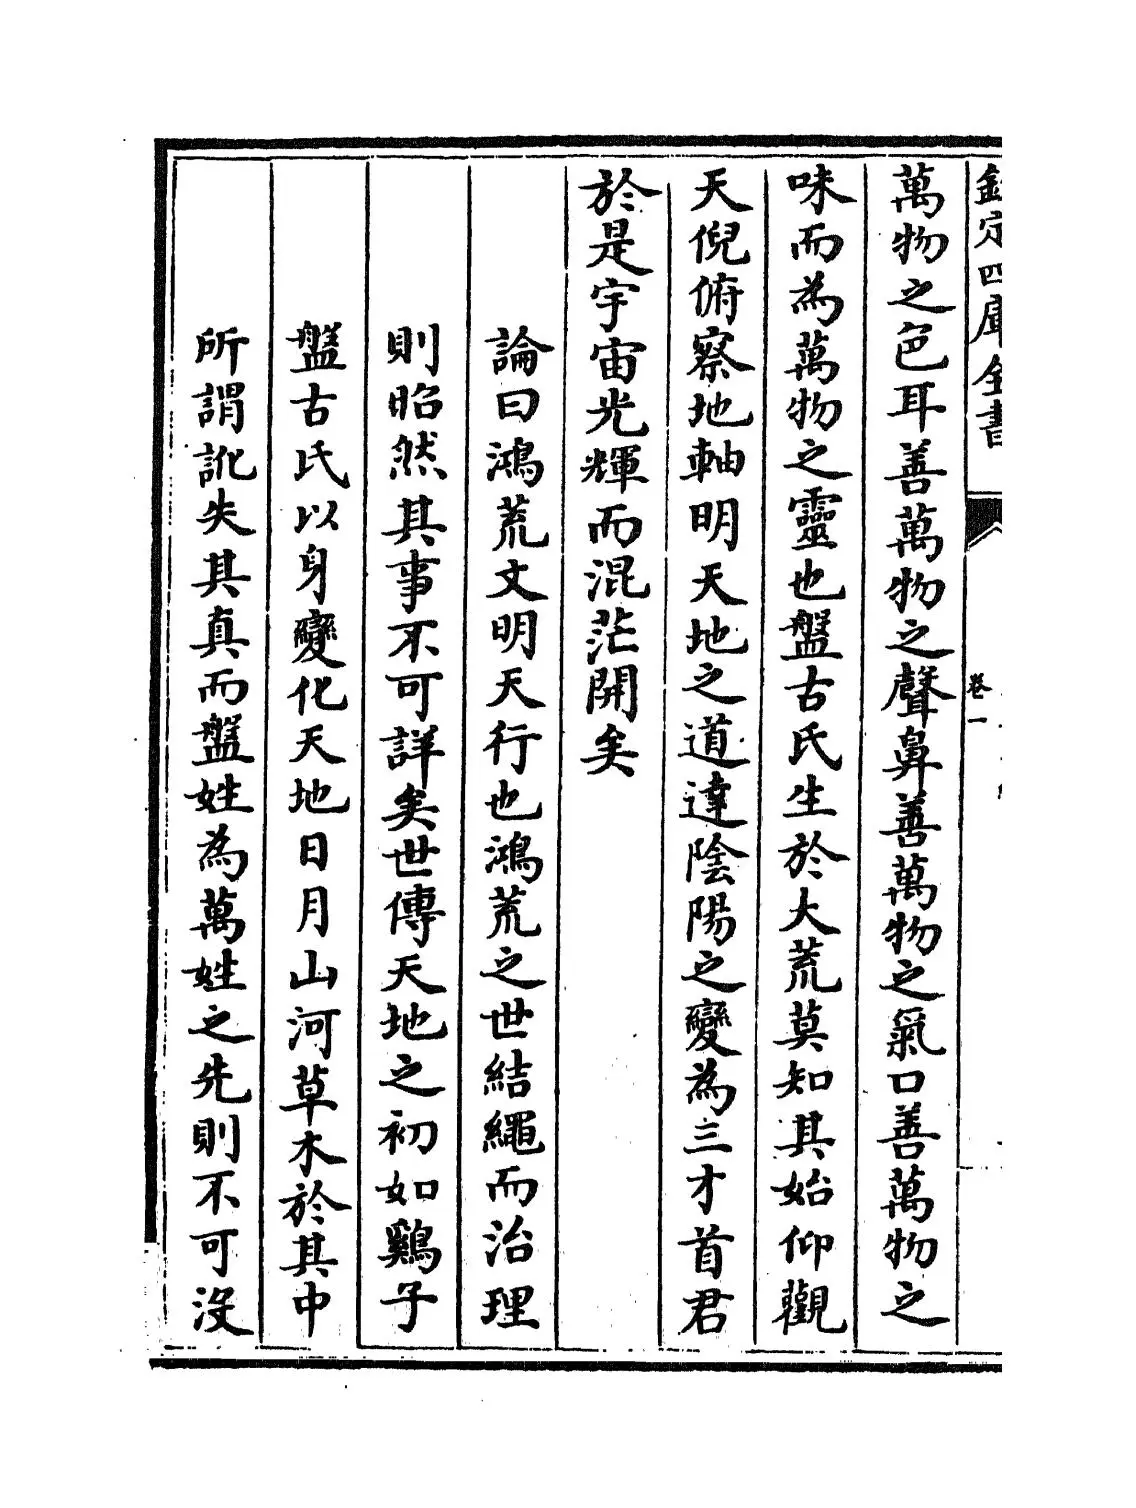 欽定四庫全書
卷一
萬物之色耳善萬物之聲鼻善萬物之氣口善萬物之
味而為萬物之靈也盤古氏生於大荒莫知其始仰觀
天倪俯察地軸明天地之道達陰陽之變為三才首君
於是宇宙光輝而混茫開矣
論曰鴻荒文明天行也鴻荒之世結繩而治理
則昭然其事不可詳矣世傳天地之初如鷄子
盤古氏以身變化天地日月山河草木於其中
所謂訛失其真而盤姓為萬姓之先則不可沒